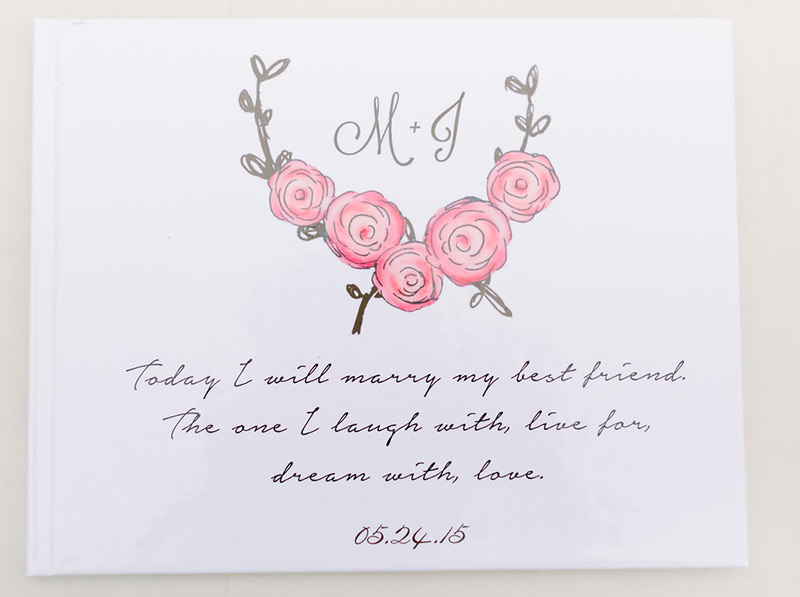 M + J
Today I will marry my best friend.
The one I laugh with, live for,
dream with, love.
05.24.15